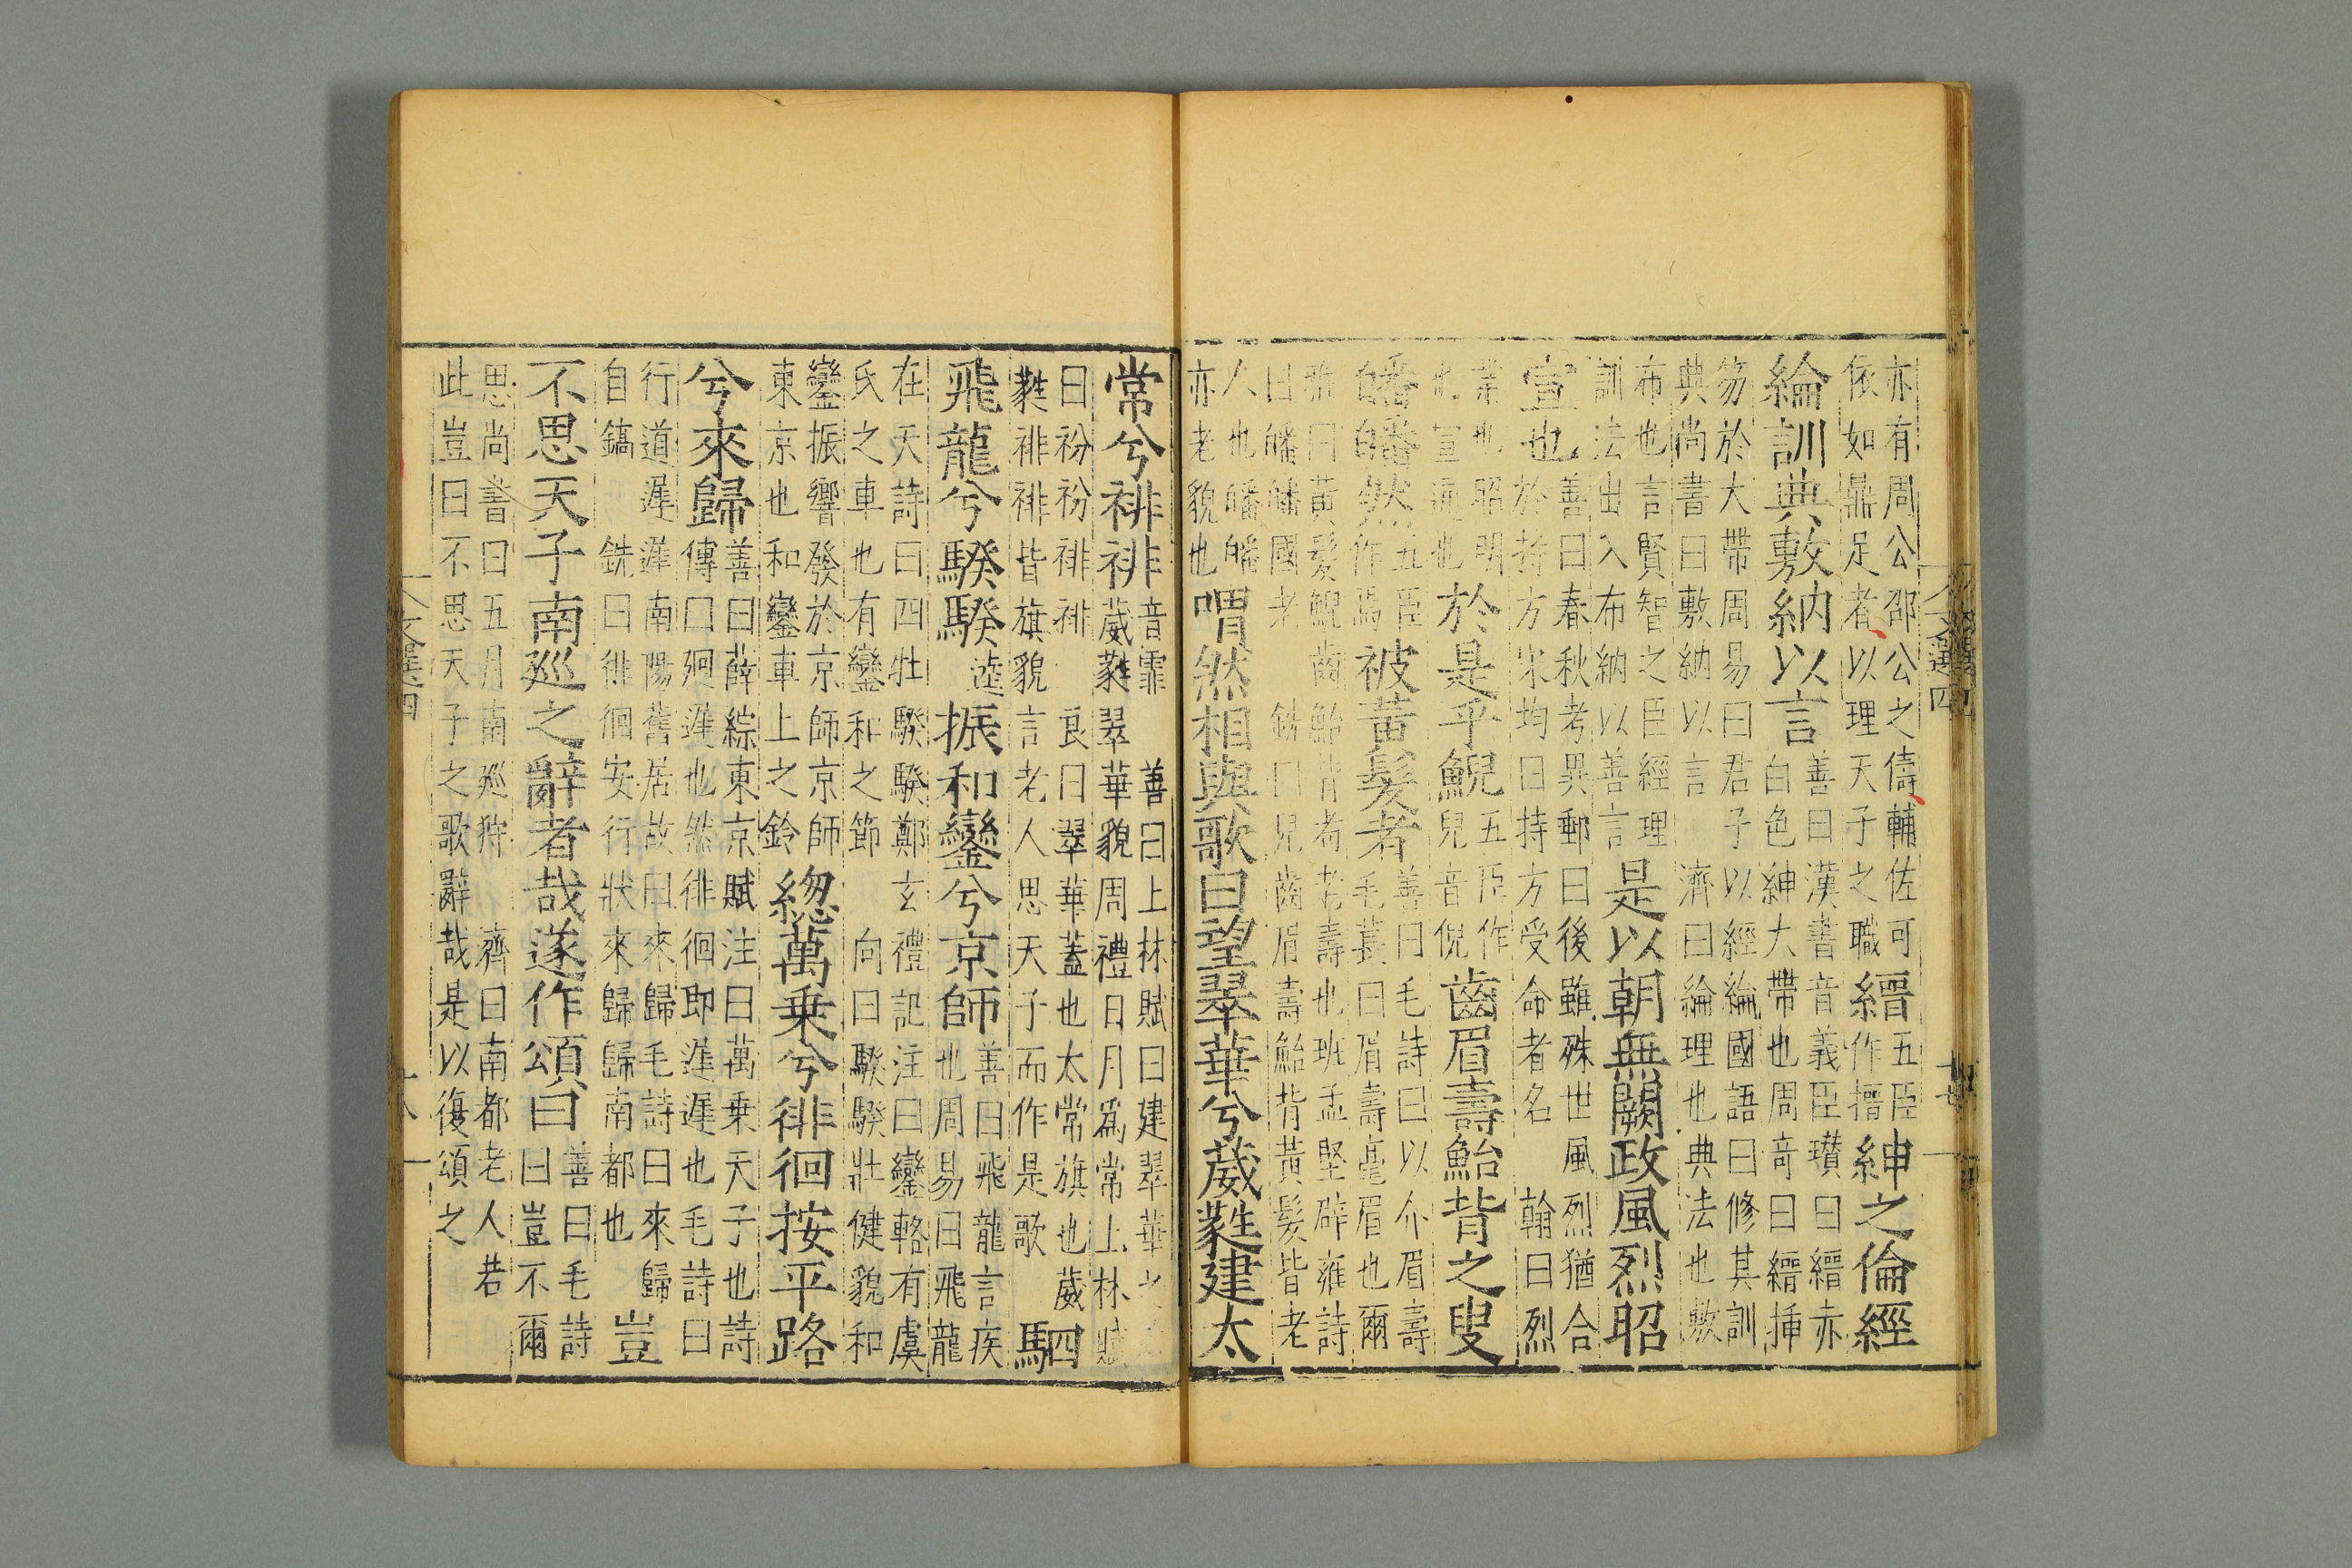 亦有周公邵公之儔輔佐可
依如鼎足者以理天子之職
縉
五臣
作搢
紳之倫經
綸訓典敷納以言
善曰漢書音義臣瓚曰縉赤
白色紳大帶也周奇曰縉揷
笏於大帶周易曰君子以經綸國語曰修其訓
典尚書曰敷納以言 濟曰綸理也典法也敷
布也言賢智之臣經理
訓法出入布納以善言
是以朝無闕政風烈昭
宣也
善曰春秋考異郵曰後雖殊世風烈猶合
於持方宋均曰持方受命者名 翰曰烈
業也昭明
也宣遍也
於是乎鯢
五臣作
兒音倪
齒眉壽鮐背之叟
皤皤然
五臣
作焉
被黃髮者
善曰毛詩曰以介眉壽
毛萇曰眉壽毫眉也爾
雅曰黃髮鯢齒鮐背耇老壽也班孟堅辟雍詩
曰皤皤國老 銑曰兒齒眉壽鮐背黃髮皆老
人也皤皤
亦老貌也
喟然相與歌曰望翠華兮葳蕤建太
常兮裶裶
音霏 善曰上林賦曰建翠華之
葳蕤翠華貌周禮日月爲常上林賦
曰衯衯裶裶 良曰翠華蓋也太常旗也葳
蕤裶裶皆旗貌言老人思天子而作是歌
駟
飛龍兮騤騤
逵
振和鑾兮京師
善曰飛龍言疾
也周易曰飛龍
在天詩曰四牡騤騤鄭玄禮記注曰鑾輅有虞
氏之車也有鑾和之節 向曰騤騤壯健貌和
鑾振響發於京師京師
東京也和鑾車上之鈴
緫萬乗兮徘徊按平路
兮來歸
善曰薛綜東京賦注曰萬乗天子也詩
傳曰廻遲也然徘徊即遲遲也毛詩曰
行道遲遲南陽舊居故曰來歸毛詩曰來歸
自鎬 銑曰徘徊安行狀來歸歸南都也
豈
不思天子南巡之辭者哉遂作頌曰
善曰毛詩
曰豈不爾
思尚書曰五月南廵狩 濟曰南都老人若
此豈曰不思天子之歌辭哉是以復頌之